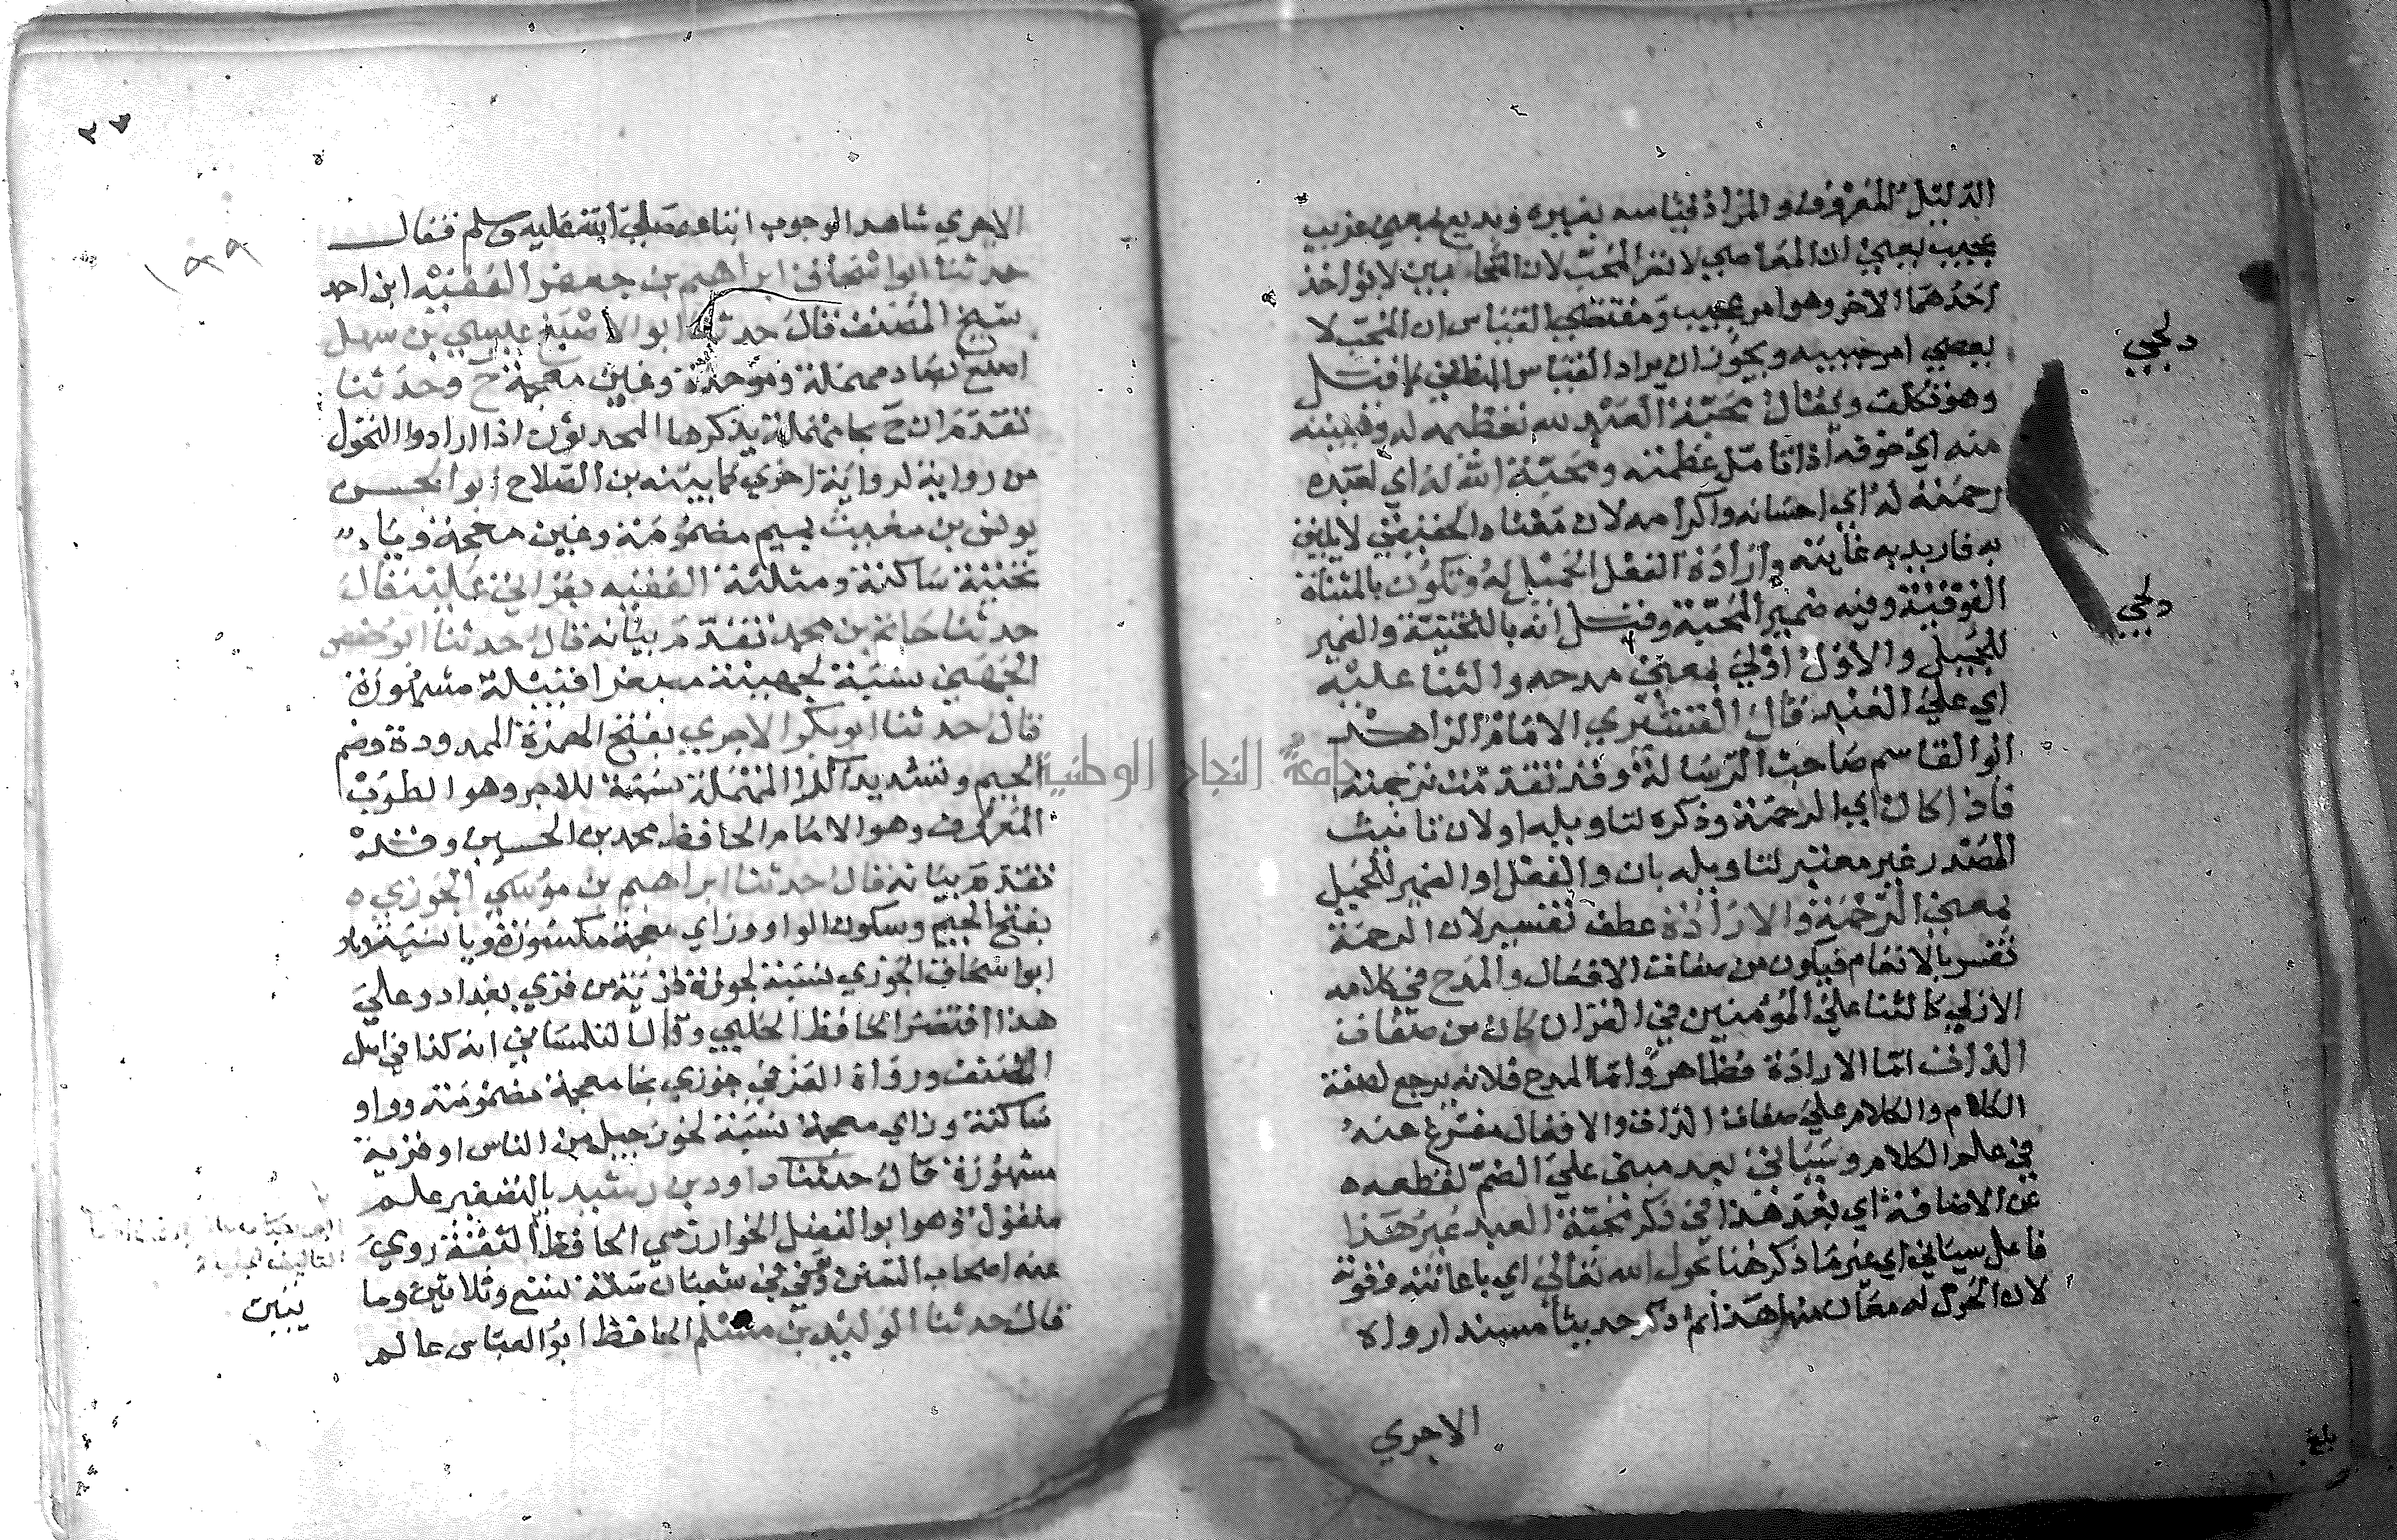 الدليل المعروف والمراد قياسه بغيره وبديع بمعنى غريب
عجيب يعني ان المعاصي لا تضر المحب لان المتحابين لا يؤاخذ
احدهما الاخر وهو امر عجيب ومقتضى القياس ان المحب لا
يعصي امر حبيبه ويجوز ان يراد القياس المنطقي كما قيل
وهو تكلف ويقال محبة العبد لله تعظيمه له وهيبته
منه اي خوفه اذا تامل عظمته ومحبة الله له اي لعبده
رحمته له اي احسانه واكرامه لان معناه الحقيقي لا يليق
به فاريد به غايته وارادة الفعل الجميل له وتكون بالمثناة
الفوقية وفيه ضمير المحبة وقيل انه بالتحتية والضمير
للجميل والاول اولى بمعنى مدحه والثنا عليه
اي على العبد قال القشيري الامام الزاهد
ابو القاسم صاحب الرسالة وقد تقدمت ترجمته
فاذا كان اي الرحمة وذكره لتاويله او لان تانيث
المصدر غير معتبر لتاويله بان والفعل او الضمير للجميل
بمعنى الرحمة والارادة عطف تفسير لان الرحمة
تفسر بالانعام فيكون من صفات الافعال والمدح في كلامه
الازلي كالثنا على المؤمنين في القران كان من صفات
الذات اما الارادة فظاهر واما المدح فلانه يرجع لصفة
الكلام والكلام على صفات الذات والافعال مفرغ منه
في علم الكلام وسياتي بعد مبني على الضم لقطعه
عن الاضافة اي بعد هذا في ذكر محبة العبد غير هذا
فاعل سياتي اي غير ما ذكر هنا بحول الله تعالى اي باعانته وقوته
لان الحول له معان منها هذا ثم ذكر حديثا مسندا رواه
الاجري
دلجي
دلجي
بلغ
٢٣
١٩٩
الاجري شاهدا لوجوب اتباعه صلى الله عليه وسلم فقال
حدثنا ابو اسحاق ابراهيم بن جعفر الفقيه ابن احد
شيخ المصنف قال حدثنا ابو الاصبغ عيسى بن سهل
اصبغ بصاد مهملة وموحدة وغين معجمة ح وحدثنا
تقدم ان ح بحا مهملة يذكرها المحدثون اذا ارادوا التحول
من رواية لرواية اخرى كما بينه بن الصلاح ابو الحسن
يونس بن مغيث بميم مضمومة وغين معجمة ويا
تحتية ساكنة ومثلثة الفقيه بقراتي عليه قال
حدثنا حاتم بن محمد تقدم بيانه قال حدثنا ابو حفص
الجهني نسبة لجهينة مصغرا قبيلة مشهورة
قال حدثنا ابو بكر الاجري بفتح الهمزة الممدودة وضم
الجيم وتشديد الرا المهملة نسبة للاجر وهو الطوب
المعروف وهو الامام الحافظ محمد بن الحسين وقد
تقدم بيانه قال حدثنا ابراهيم بن موسى الجوزي
بفتح الجيم وسكون الواو وزاي معجمة مكسورة ويا نسبة وهو
ابو اسحاق الجوزي نسبة لجوزة قرية من قرى بغداد وعلى
هذا اقتصر الحافظ الحلبي وقال التلمساني انه كذا في اصل
المصنف ورواه العزفي خوزي بخا معجمة مضمومة وواو
ساكنة وزاي معجمة نسبة لخوز جيل من الناس او قرية
مشهورة قال حدثنا داود بن رشيد بالتصغير علم
منقول وهو ابو الفضل الخوارزمي الحافظ الثقة روى
عنه اصحاب السنن وتوفي في شعبان سنة تسع وثلاثين وما
يتين
قال حدثنا الوليد بن مسلم الحافظ ابو العباس عالم
جامعة النجاح الوطنية